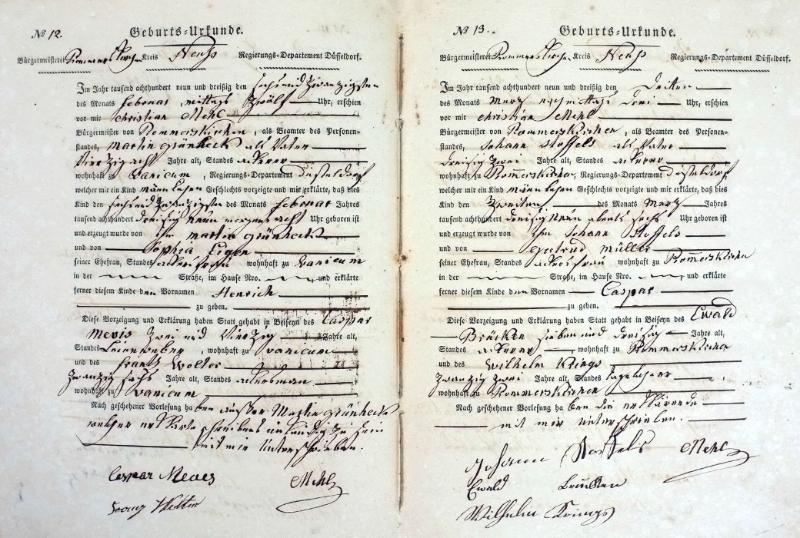 No 12. Geburts-Urkunde.
Bürgermeisterei Rommerskirchen Kreis Neuß Regierungs-Departement Düsseldorf.
Im Jahr tausend achthundert neun und dreißig den sechs und zwanzigsten
des Monats Februar mittags zwölf Uhr, erschien
vor mir Christian Mehl
Bürgermeister von Rommerskirchen, als Beamter des Personen-
standes, Martin Grünheck als Vater
vierzig acht Jahre alt, Standes Ackerer
wohnhaft zu Vanicum, Regierungs-Departement Düsseldorf
welcher mir ein Kind männlichen Geschlechts vorzeigte und mir erklärte, daß dies
Kind den sechs und zwanzigsten des Monats Februar Jahres
tausend achthundert dreißig neun morgens acht Uhr geboren ist
und erzeugt von ihm Martin Grünheck
und von Sophia
seiner Ehefrau, Standes Ackersfrau wohnhaft zu Vanicum
in der Straße, im Hause Nro. und erklärte
ferner diesem Kinde den Vornamen Henrich
zu geben.
Diese Vorzeigung und Erklärung haben Statt gehabt in Beiseyn des Caspar
Mevis zwei und vierzig Jahre alt,
Standes Leinenweber, wohnhaft zu Vanicum
und des Franz Wolter
zwanzig sechs Jahre alt, Standes
wohnhaft zu Vanicum
Nach geschehener Vorlesung haben außer Martin Grünheck
welcher erklärte schreibens unkundig zu sein
mit mir unterschrieben.
Caspar Meves Mehl
No 13. Geburts-Urkunde.
Bürgermeisterei Rommerskirchen Kreis Neuß Regierungs-Departement Düsseldorf.
Im Jahr tausend achthundert neun und dreißig den dritten
des Monats März nachmittags drei Uhr, erschien
vor mir Christian Mehl
Bürgermeister von Rommerskirchen, als Beamter des Personen-
standes, Johann Stoffels als Vater
dreißig zwei Jahre alt, Standes Ackerer
wohnhaft zu Rommerskirchen, Regierungs-Departement Düsseldorf
welcher mir ein Kind männlichen Geschlechts vorzeigte und mir erklärte, daß dies
Kind den zweiten des Monats März Jahres
tausend achthundert dreißig neun abends sechs Uhr geboren ist
und erzeugt von ihm Johann Stoffels
und von Gertrud Müller
seiner Ehefrau, Standes Ackersfrau wohnhaft zu Rommerskirchen
in der Straße, im Hause Nro. und erklärte
ferner diesem Kinde den Vornamen Caspar
zu geben.
Diese Vorzeigung und Erklärung haben Statt gehabt in Beiseyn des Ewald
Brücken sieben und dreißig Jahre alt,
Standes Ackerer wohnhaft zu Rommerskirchen
und des Wilhelm Krings
zwanzig zwei Jahre alt, Standes Tagelöhner
wohnhaft zu Rommerskirchen
Nach geschehener Vorlesung haben die
mit mir unterschrieben.
Johann Stoffels Mehl
Ewald
Wilhelm Krings